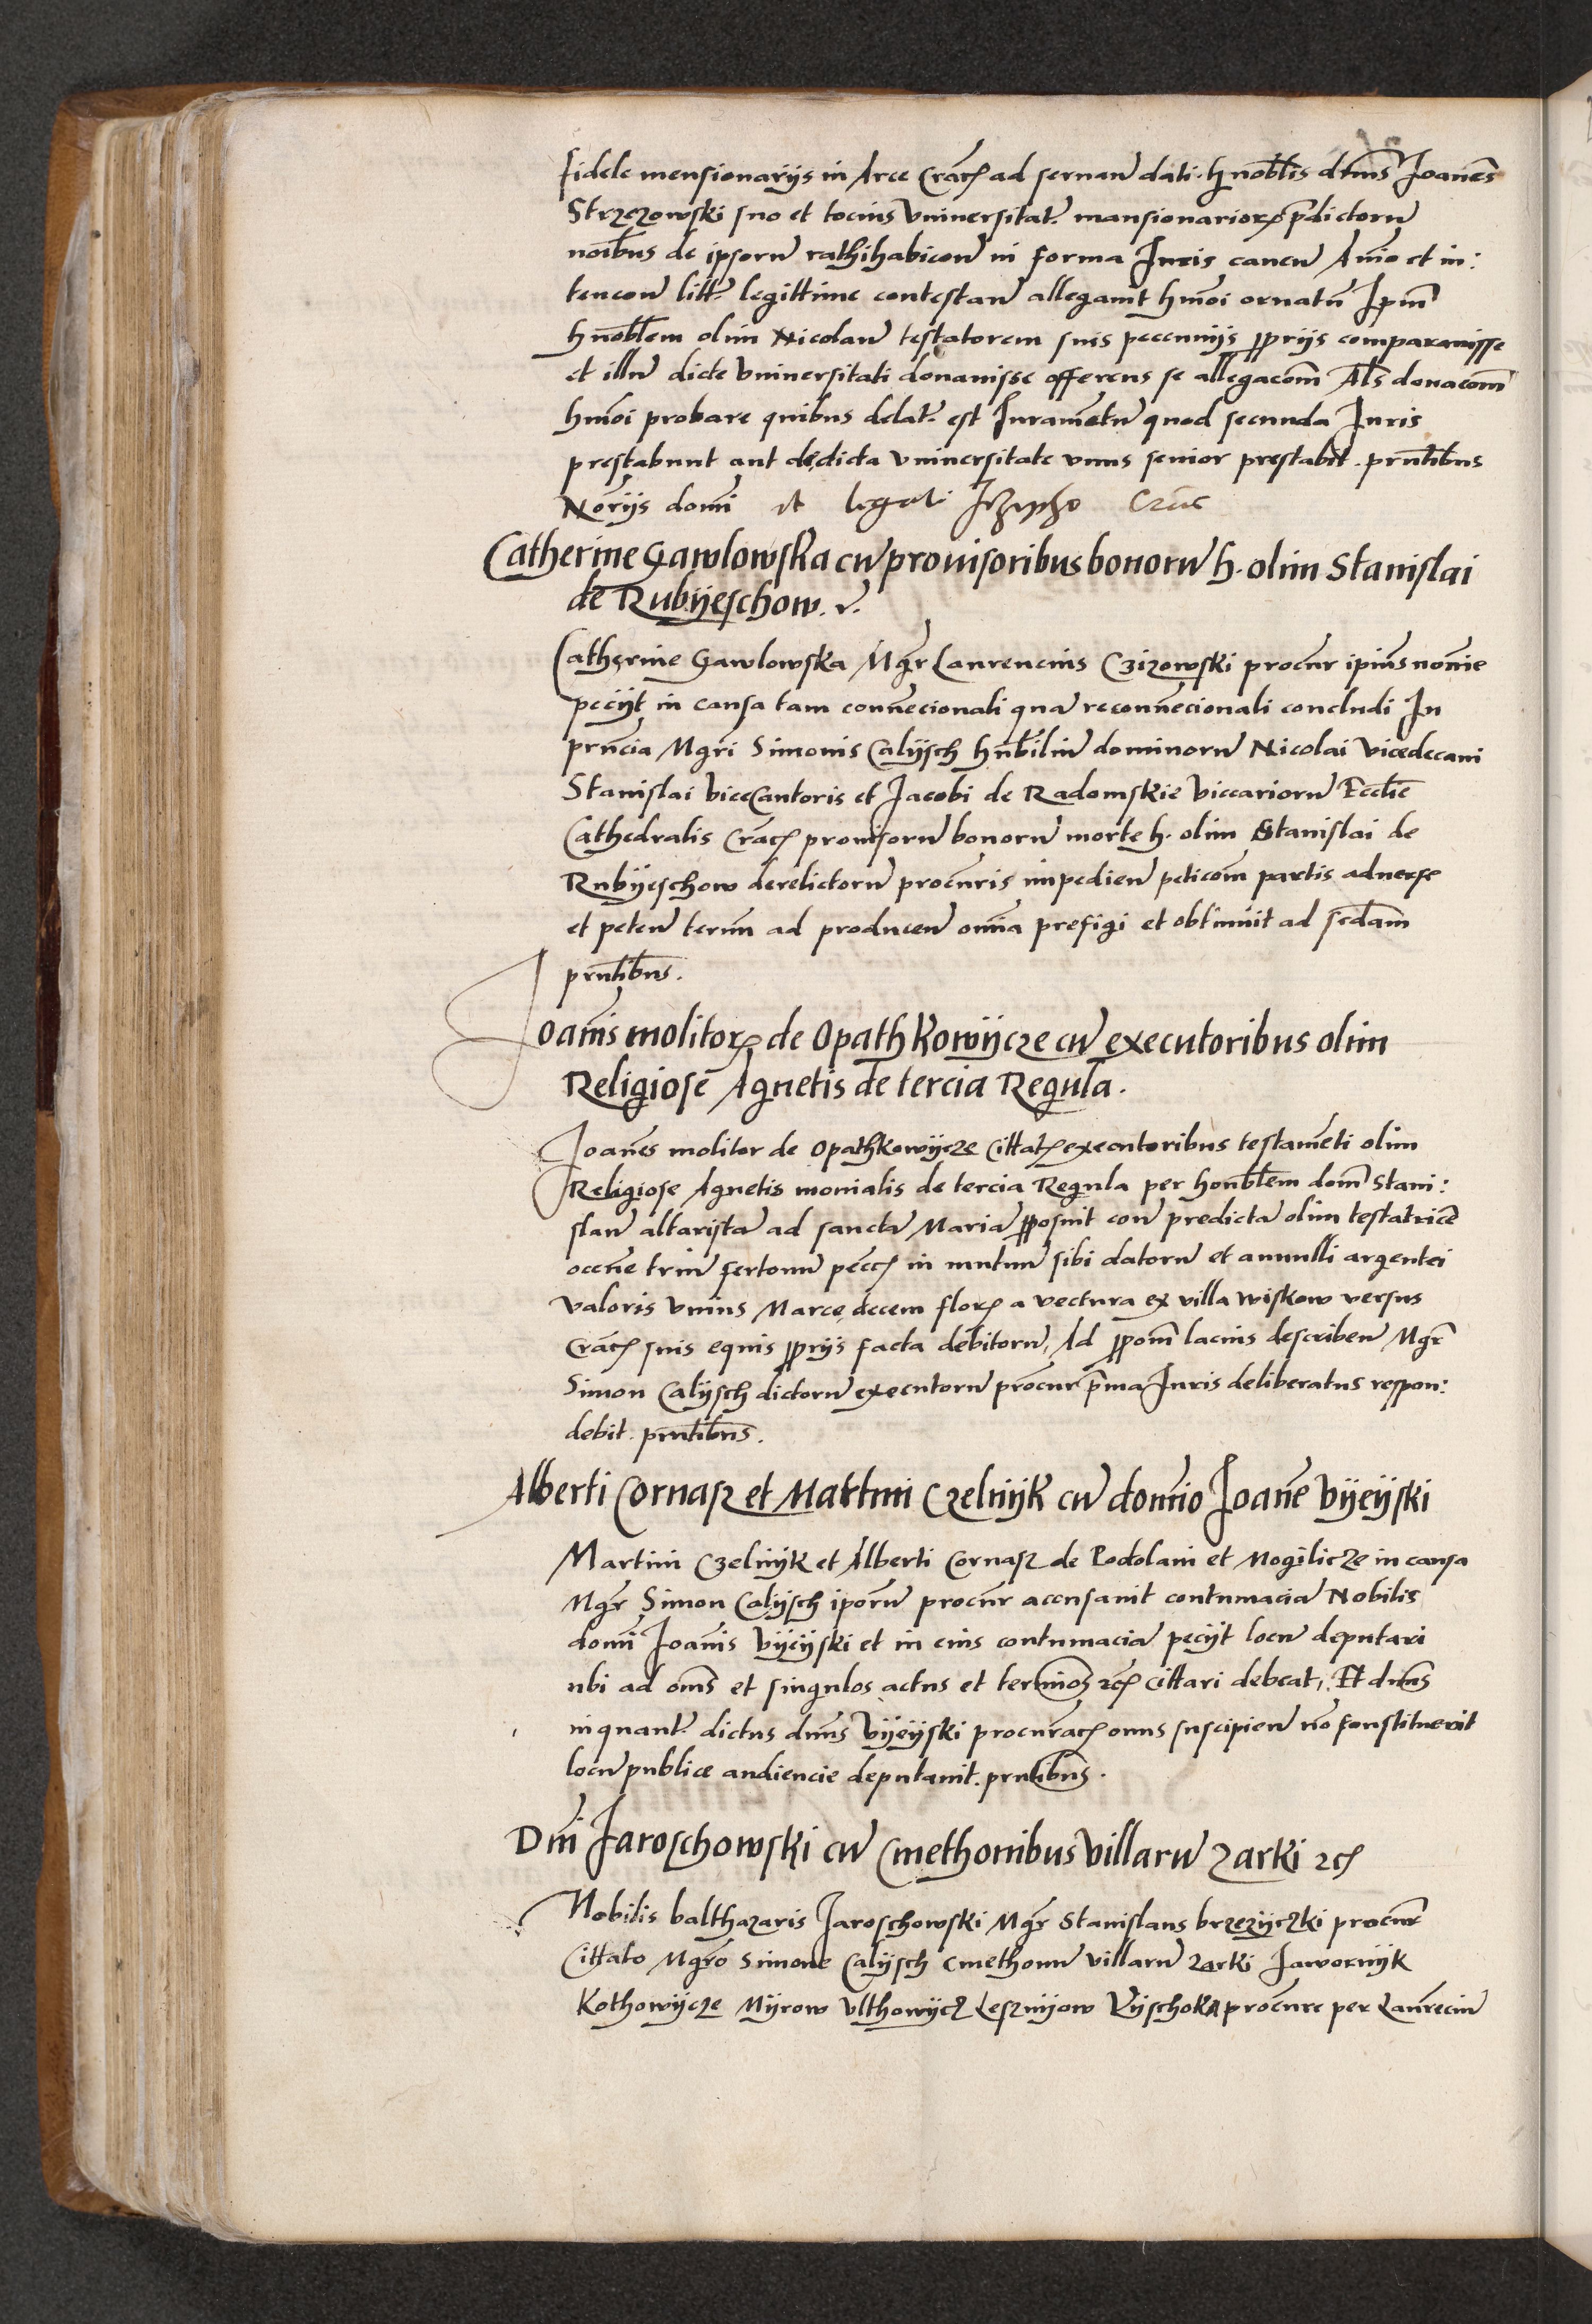 fidele mensionarijs in Arce Crac̃ ad servan̄ dati. h̃nob̃lis dñus Joanẽs
Strzezowski suo et tocius Universitat̃ mansionarior̃ p̃dictorũ
noĩbus de ipsorũ rathihabicoñ in forma Juris caven̄ Añio et in:
tencoñ litt̃ legittime contestañ allegavit hm̃oi ornatũ Ip̃m
h̃nob̃lem olim Nicolaũ testatorem suis peccunijs p̃prijs comparavisse
et illũ dicte Universitati donavisse offerens se allegacõm Al̃s donacõm
hm̃oi probare quibus delat̃ est Juramẽtũ quod secunda Juris
prestabunt aut de dicta Universitate unus senior prestabit. pñtib̃us
Nõrijs domĩ et
Catherine Gawlowska cũ provisoribus bonorũ h. olim Stanislai
de Rubyeschow. v.
Catherine Gawlowska Mgr̃ Laurencius Czizowski procũr ip̃ius noĩe
peciit in causa tam conveñcionali quã reconveñcionali concludi In
pñcia Mgr̃i Simonis Calijsch hñbiliũ dominorũ Nicolai Vicedecani
Stanislai ViceCantoris et Jacobi de Radomskie Viccariorũ Eccl̃ie
Cathedralis Crac̃ provisorũ bonorũ morte h. olim Stanislai de
Rubyeschow derelictorũ procũris impedieñ peticõm partis adverse
et peteñ termĩ ad produceñ om̃ia prefigi et obtinuit ad sc̃dam
pñtib̃us.
Joañis molitor̃ de Opathkowijcze cũ executoribus olim
Religiose Agnetis de tercia Regula.
Joanẽs molitor de Opathkowijcze Cittat̃ executoribus testamẽti olim
Religiose Agnetis monialis de tercia Regula per honb̃lem dom̃ Stani:
slaũ altaristã ad sanctã Mariã p̃posuit con̄ predictã olim testatricẽ
occñe triũ fertonũ pecc̃ in mutuũ sibi datorũ et annulli argentei
valoris unius Marce, decem flor̃ a vectura ex villa Wiskow versus
Crac̃ suis equis p̃prijs facta debitorũ, Ad p̃põm lacius describeñ Mgr̃
Simon Calijsch dictorũ executorũ procũr p̃ma Juris deliberatus respon:
debit. pñtib̃us.
Alberti Cornasz et Martini Czelnijk cũ domĩo Joañe Vijeijski
Martini Czelnijk et Alberti Cornasz de Podolani et Mogilicze in causa
Mgr̃ Simon Calijsch ip̃orũ procũr accusavit contumaciã Nobilis
domĩ Joañis Vijeijski et in eius contumaciã peciit locũ deputari
ubi ad om̃s et singulos actus et termĩos etc̃ Cittari debeat, Et dñus
inquant̃ dictus dñus Vijeijski procurac̃ onus suscipieñ nõ constituerit
locũ publice audiencie deputavit. pñtib̃us.
Dñi Jaroschowski cũ Cmethonibus villarũ Zarki etc̃
Nobilis balthazaris Jaroschowski Mgr̃ Stanislaus brzezijczki procũr
Cittato Mgr̃o Simone Calijsch Cmethonũ villarũ Zarki Jawornijk
Kothowijcze Mijrow Ulthowijcz Lesznijow Vijschoka procũre per Laur̃eciũ